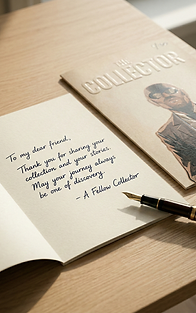 To my dear friend,
Thank you for sharing your
collection and your stories.
May your journey always
be one of discovery.
– A Fellow Collector
THE
COLLECTOR